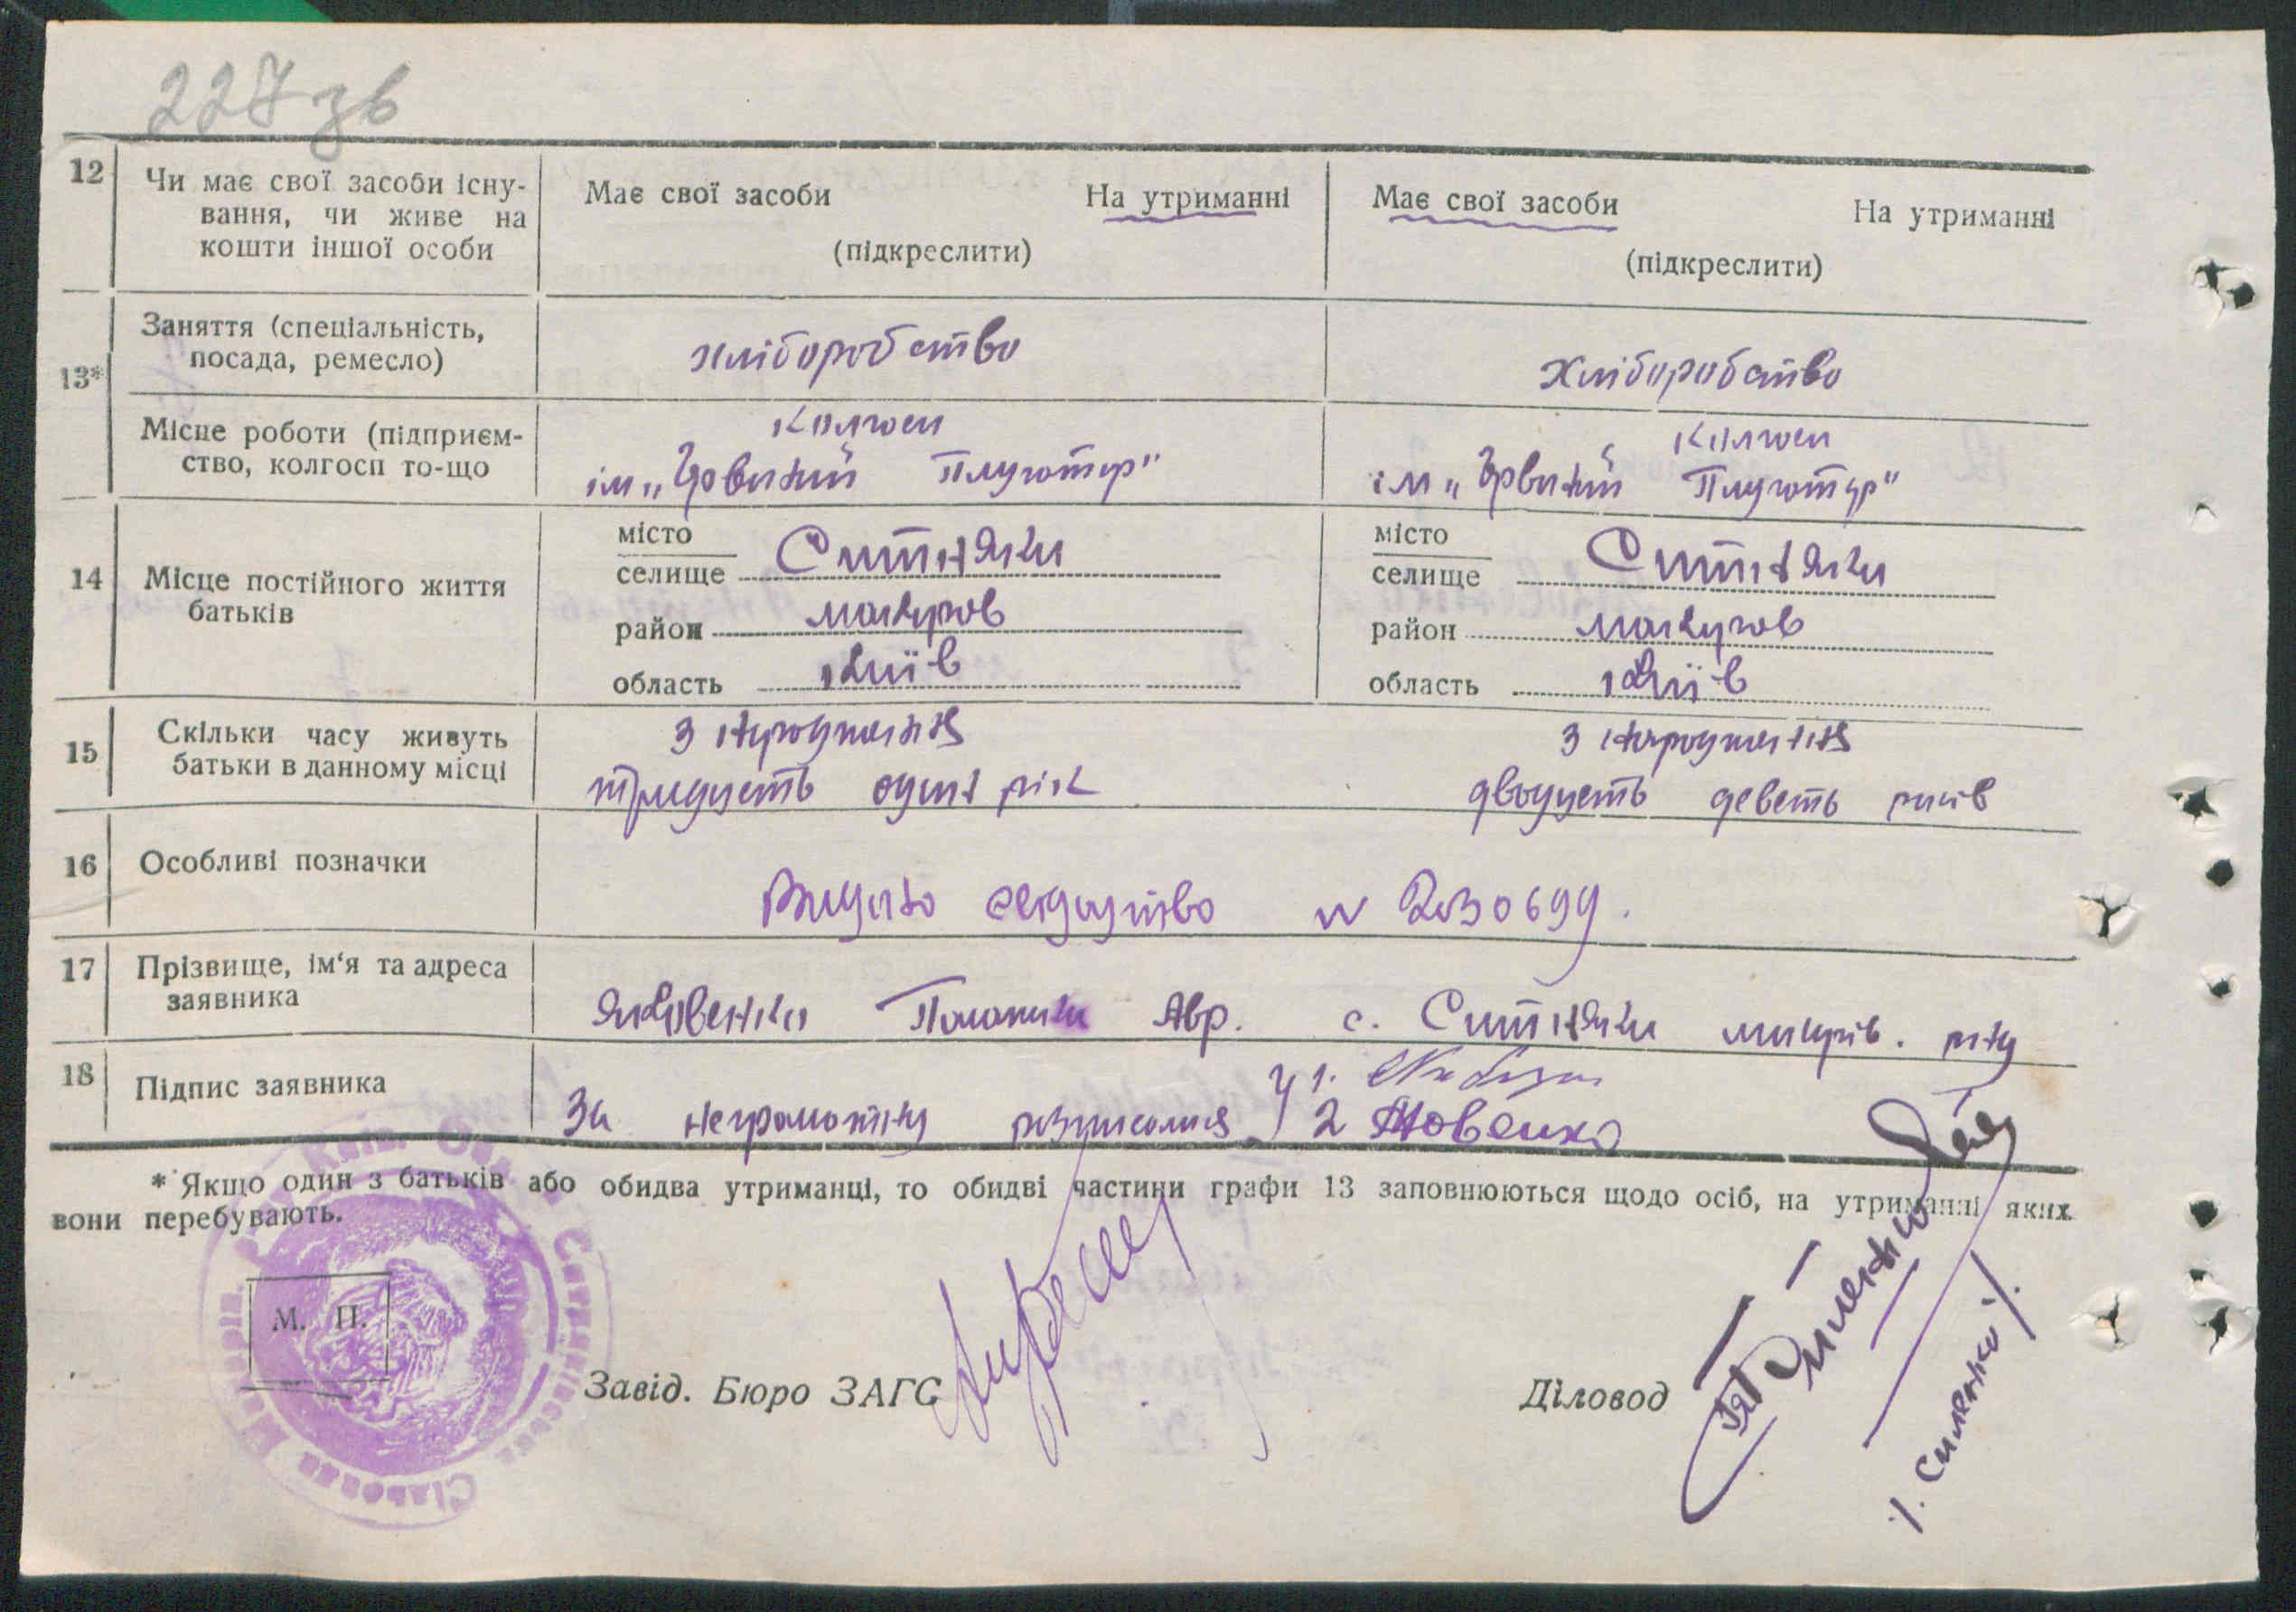 227 зв
12 Чи має свої засоби існу- Має свої засоби На утриманні Має свої засоби На утриманні
вання, чи живе на
кошти іншої особи (підкреслити) (підкреслити)
13* Заняття (спеціальність, хліборобство хліборобство
посада, ремесло)
Місце роботи (підприєм- Колгосп Колгосп
ство, колгосп то-що ім „ Плугатар" ім „ Плугатар"
місто місто
14 Місце постійного життя селище Ситняки селище Ситняки
батьків район макаров район макаров
область Київ область Київ
15 Скільки часу живуть З народження З народження
батьки в данному місці тридцеть один рік двадцеть деветь років
16 Особливі позначки Видано N 2030699.
17 Прізвище, ім'я та адреса Яковенко Авр. с. Ситняки макарів. р-ну
заявника
18 Підпис заявника За неграмотну розписалися 1.
2
* Якщо один з батьків або обидва утриманці, то обидві частини графи 13 заповнюються щодо осіб, на утриманні яких
вони перебувають.
М. П.
Завід. Бюро ЗАГС Діловод
Силенко